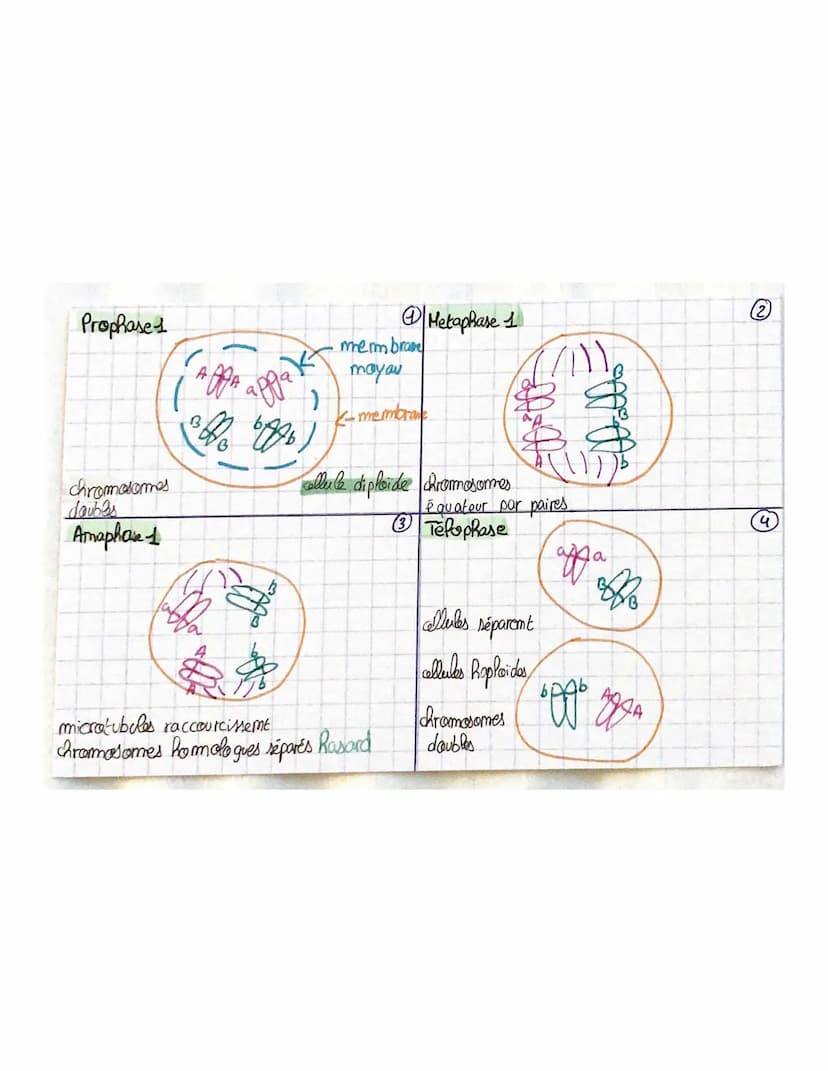 Prophase 1
①
membrane
noyau
A A a a
membrane
B B b b
chromosomes
doubles
cellule diploïde
Metaphase 1
②
a B
a B
A b
A b
chromosomes
équateur par paires
Anaphase 1
③
a B
a B
A b
A b
microtubules raccourcissent
chromosomes homologues séparés Hasard
Télophase
④
a a
B B
cellules séparent
cellules haploïdes
b b A A
chromosomes
doubles